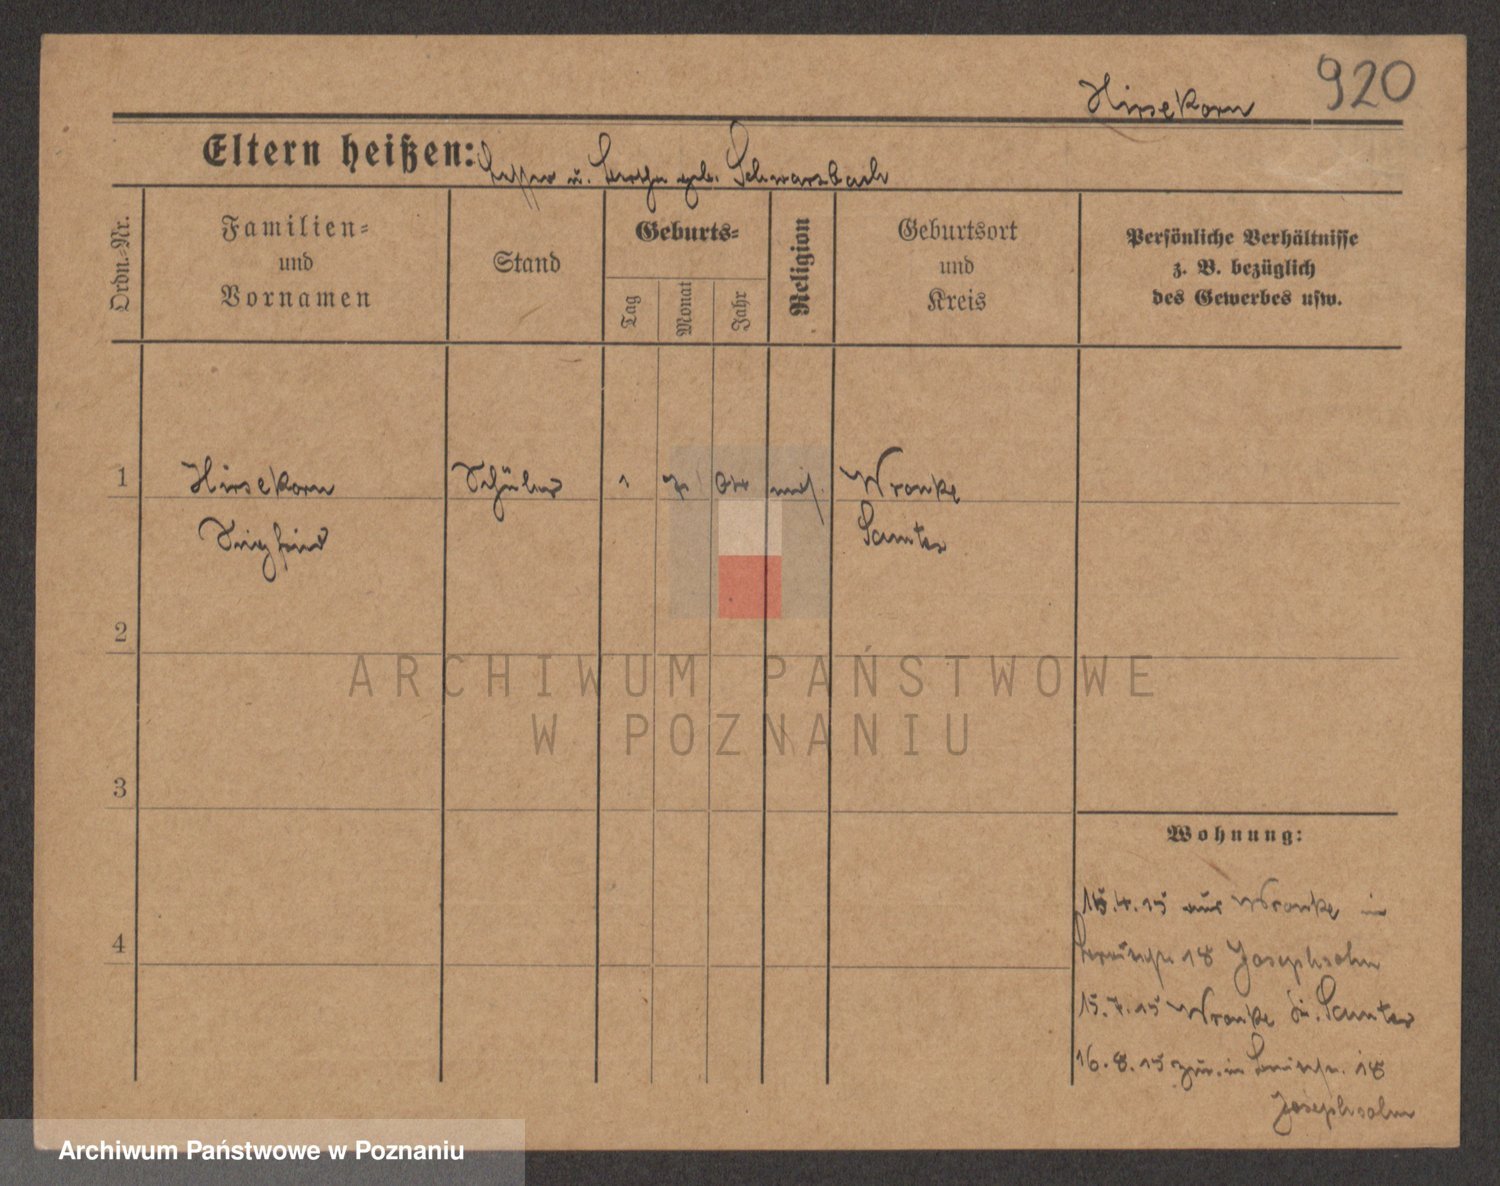 920
Hirsekorn
Eltern heißen: u. geb. Schwarzbach
Ordn.-Nr.
Familien-
und
Vornamen
Stand
Geburts-
Tag
Monat
Jahr
Religion
Geburtsort
und
Kreis
Persönliche Verhältnisse
z. B. bezüglich
des Gewerbes usw.
1 Hirsekorn Schüler 1 Wronke
Siegfried Samter
2
ARCHIWUM PAŃSTWOWE
W POZNANIU
3
Wohnung:
4.15 aus Wronke in
18 Josephsohn
4
15.7.15 Wronke Samter
16.8.15 zur. in 18
Josephsohn
Archiwum Państwowe w Poznaniu